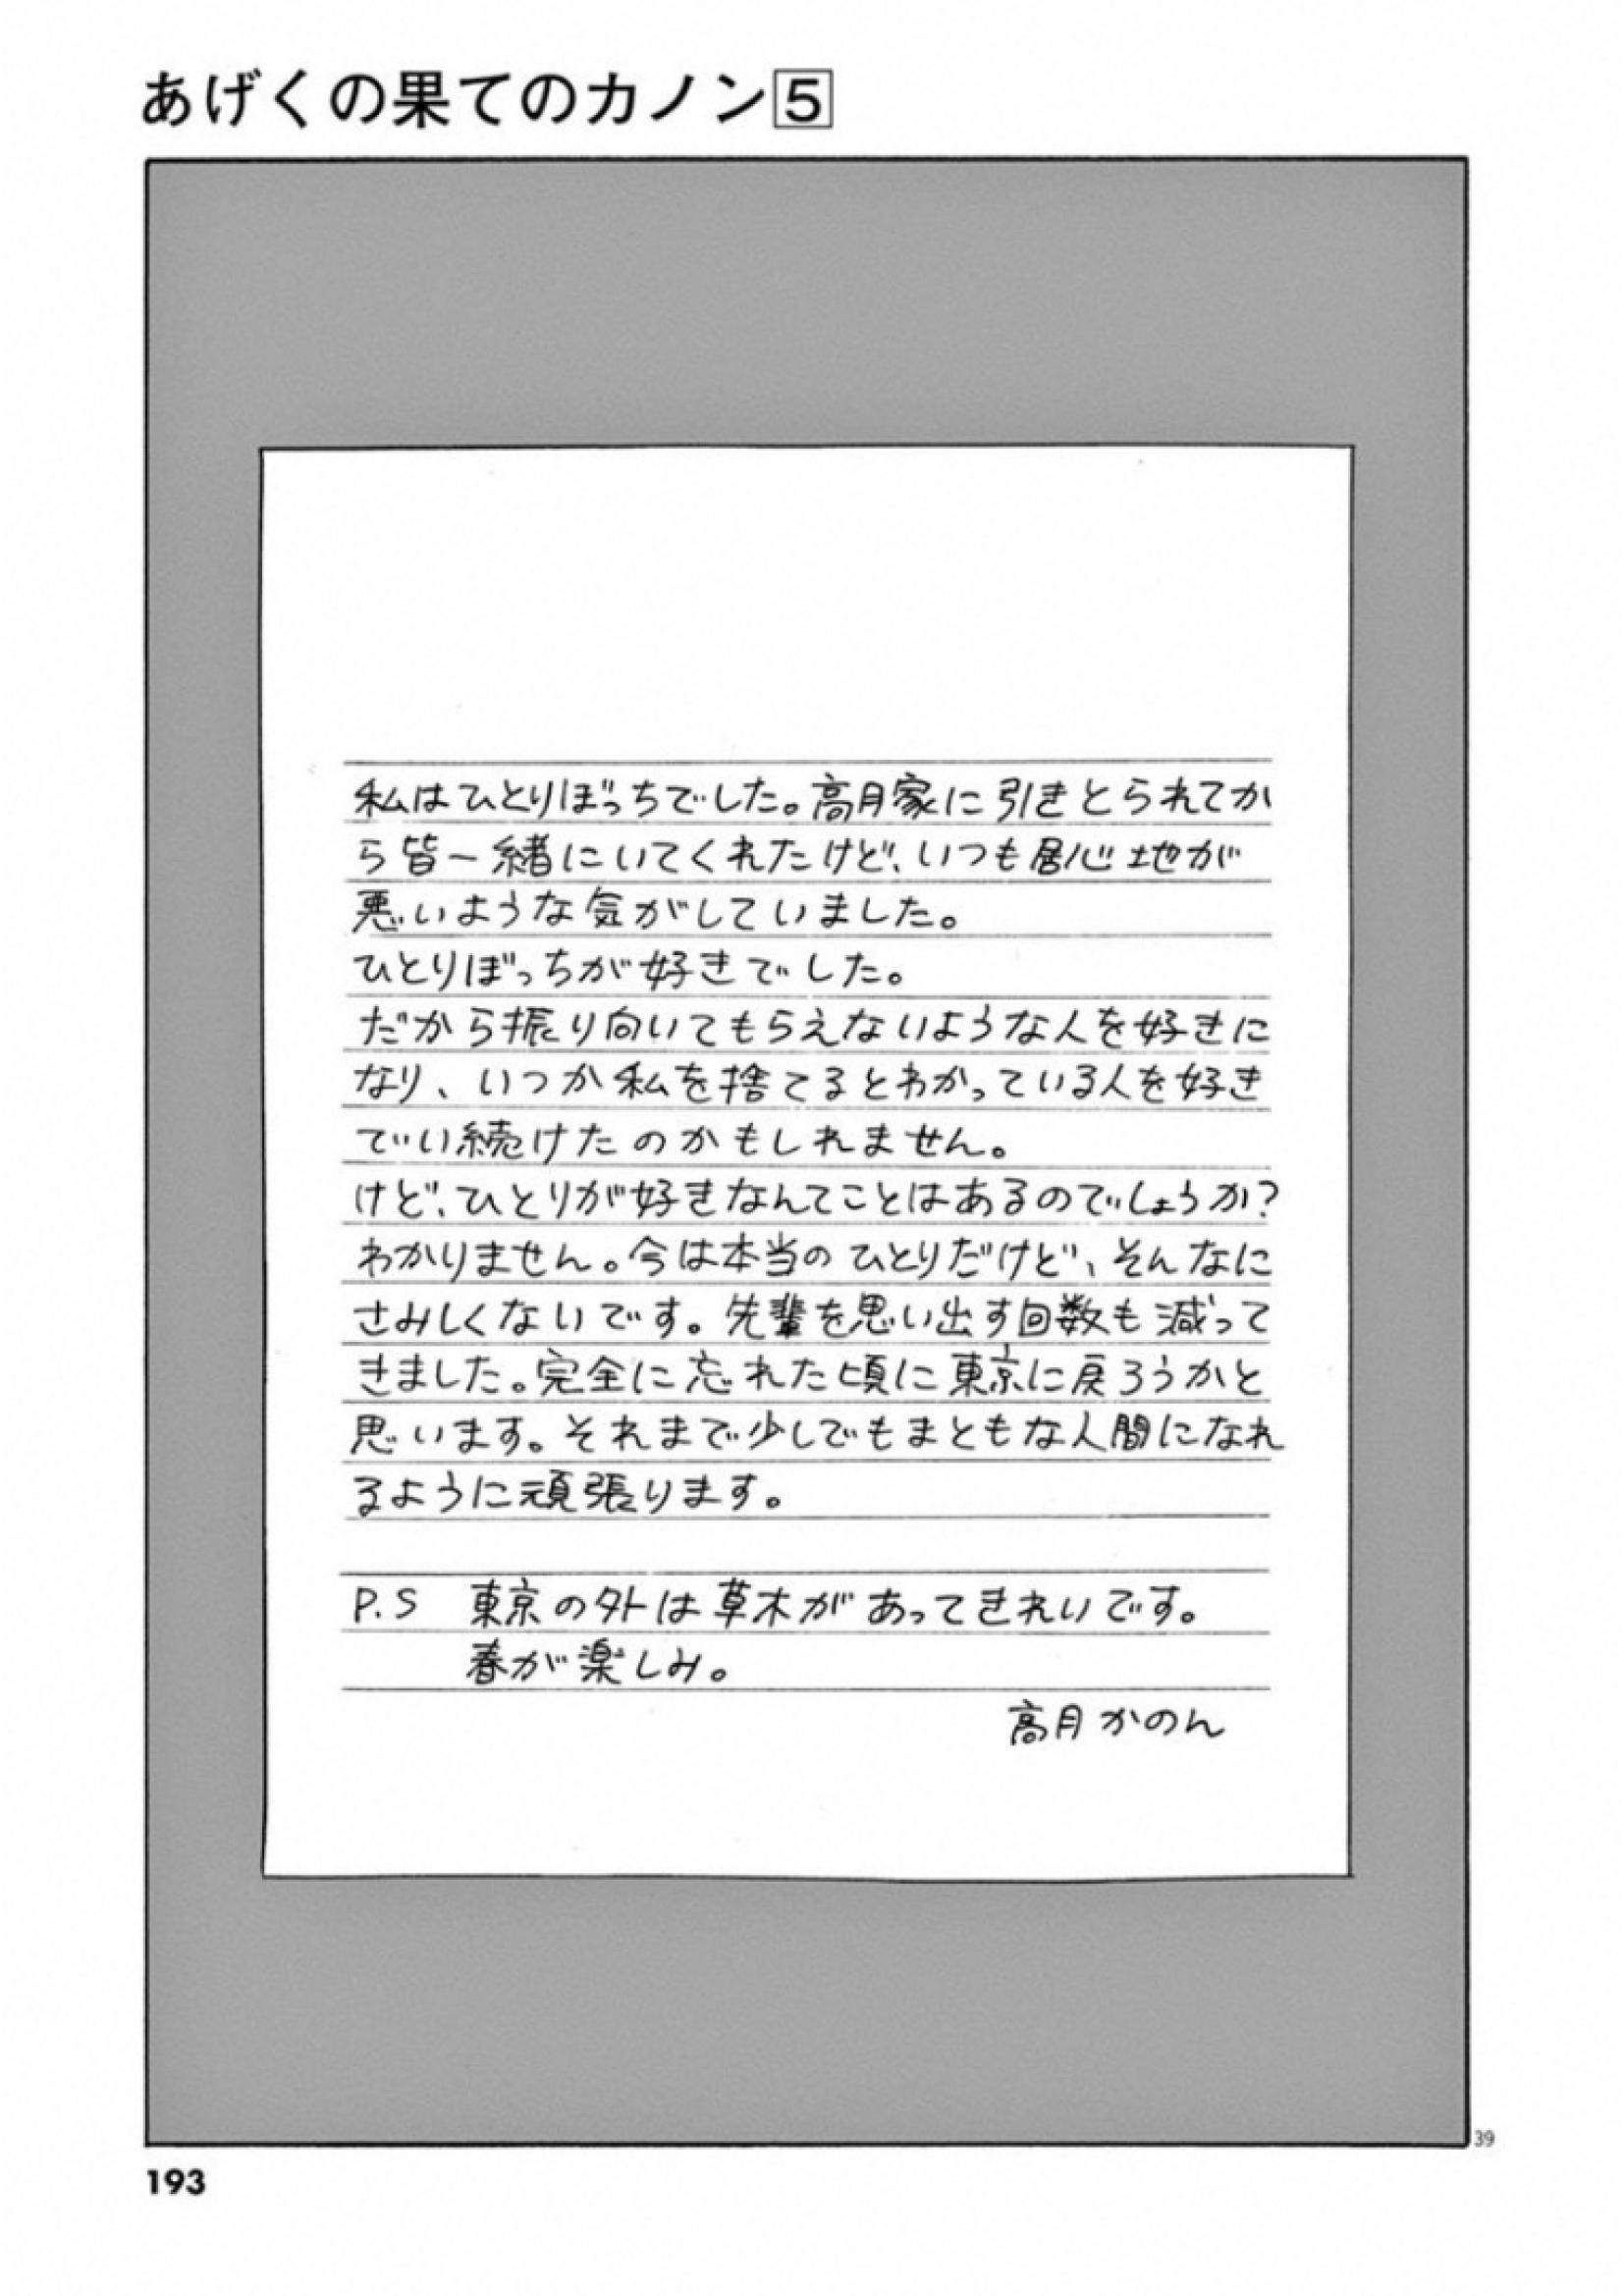 あげくの果てのカノン5
私はひとりぼっちでした。高月家に引きとられてか
ら皆一緒にいてくれたけど、いつも居心地が
悪いような気がしていました。
ひとりぼっちが好きでした。
だから振り向いてもらえないような人を好きに
なり、いつか私を捨てるとわかっている人を好き
でい続けたのかもしれません。
けど、ひとりが好きなんてことはあるのでしょうか？
わかりません。今は本当のひとりだけど、そんなに
さみしくないです。先輩を思い出す回数も減って
きました。完全に忘れた頃に東京に戻ろうかと
思います。それまで少しでもまともな人間になれ
るように頑張ります。
P.S 東京の外は草木があってきれいです。
春が楽しみ。
高月かのん
39
193